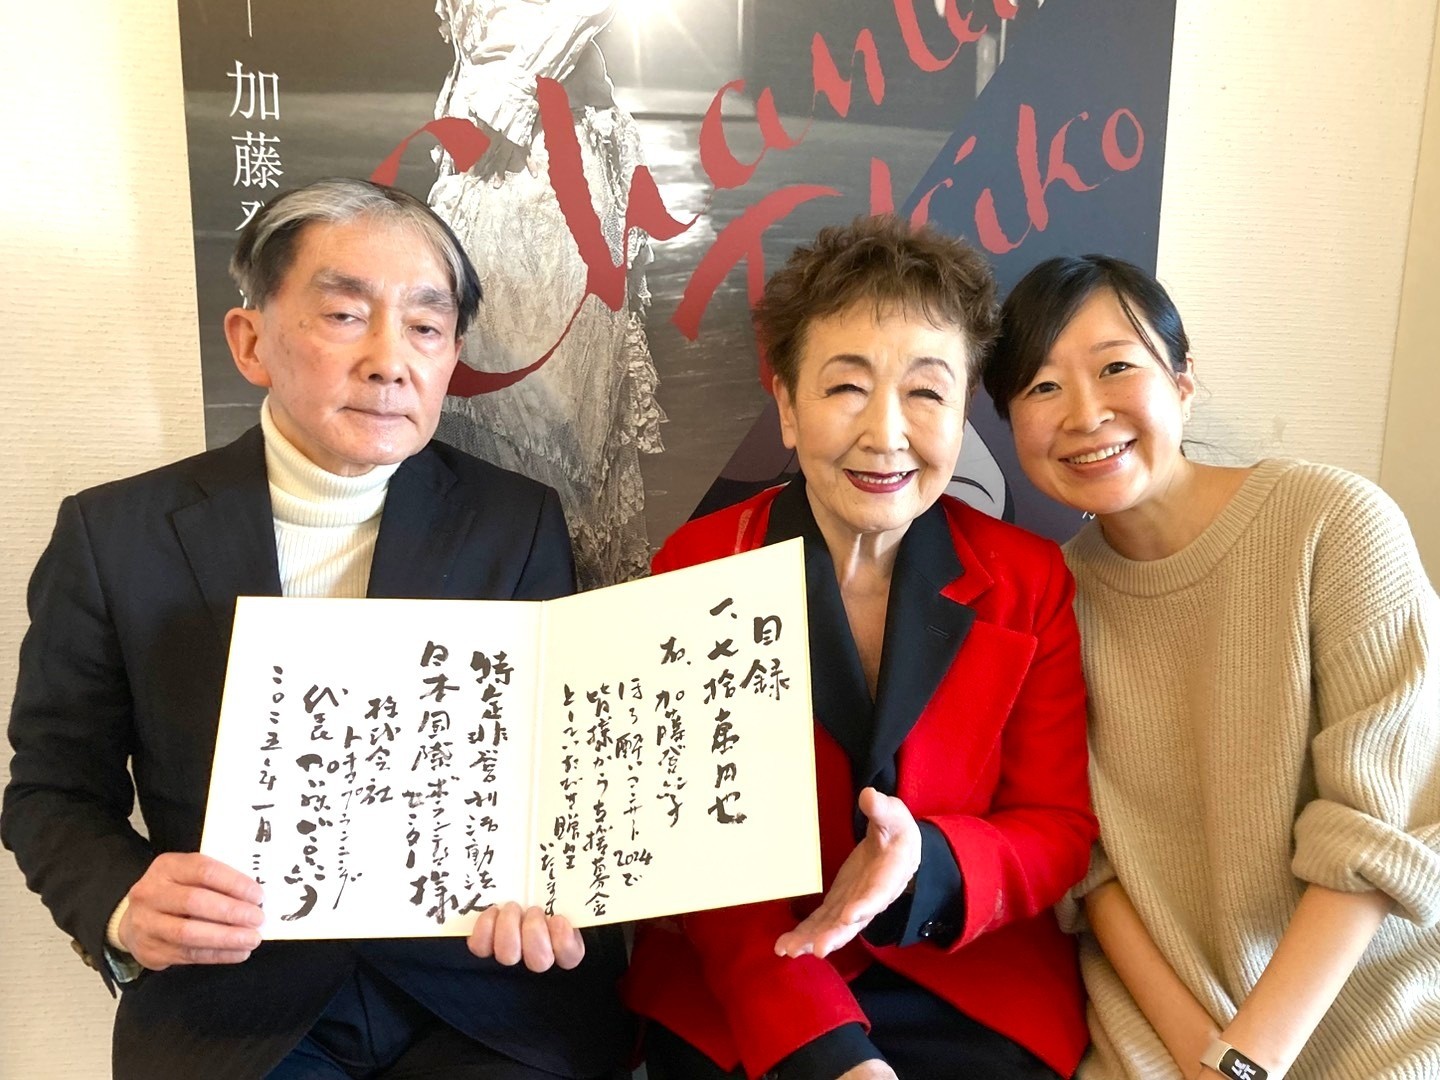 加藤
Chante
目録
一、七拾萬円也
右、加藤登紀子
ほろ酔いコンサート2024で
皆様から支援募金
としていただき贈呈
いたします
特定非営利活動法人
日本国際ボランティア
センター様
株式会社
トキコプランニング
代表
二〇二五年一月